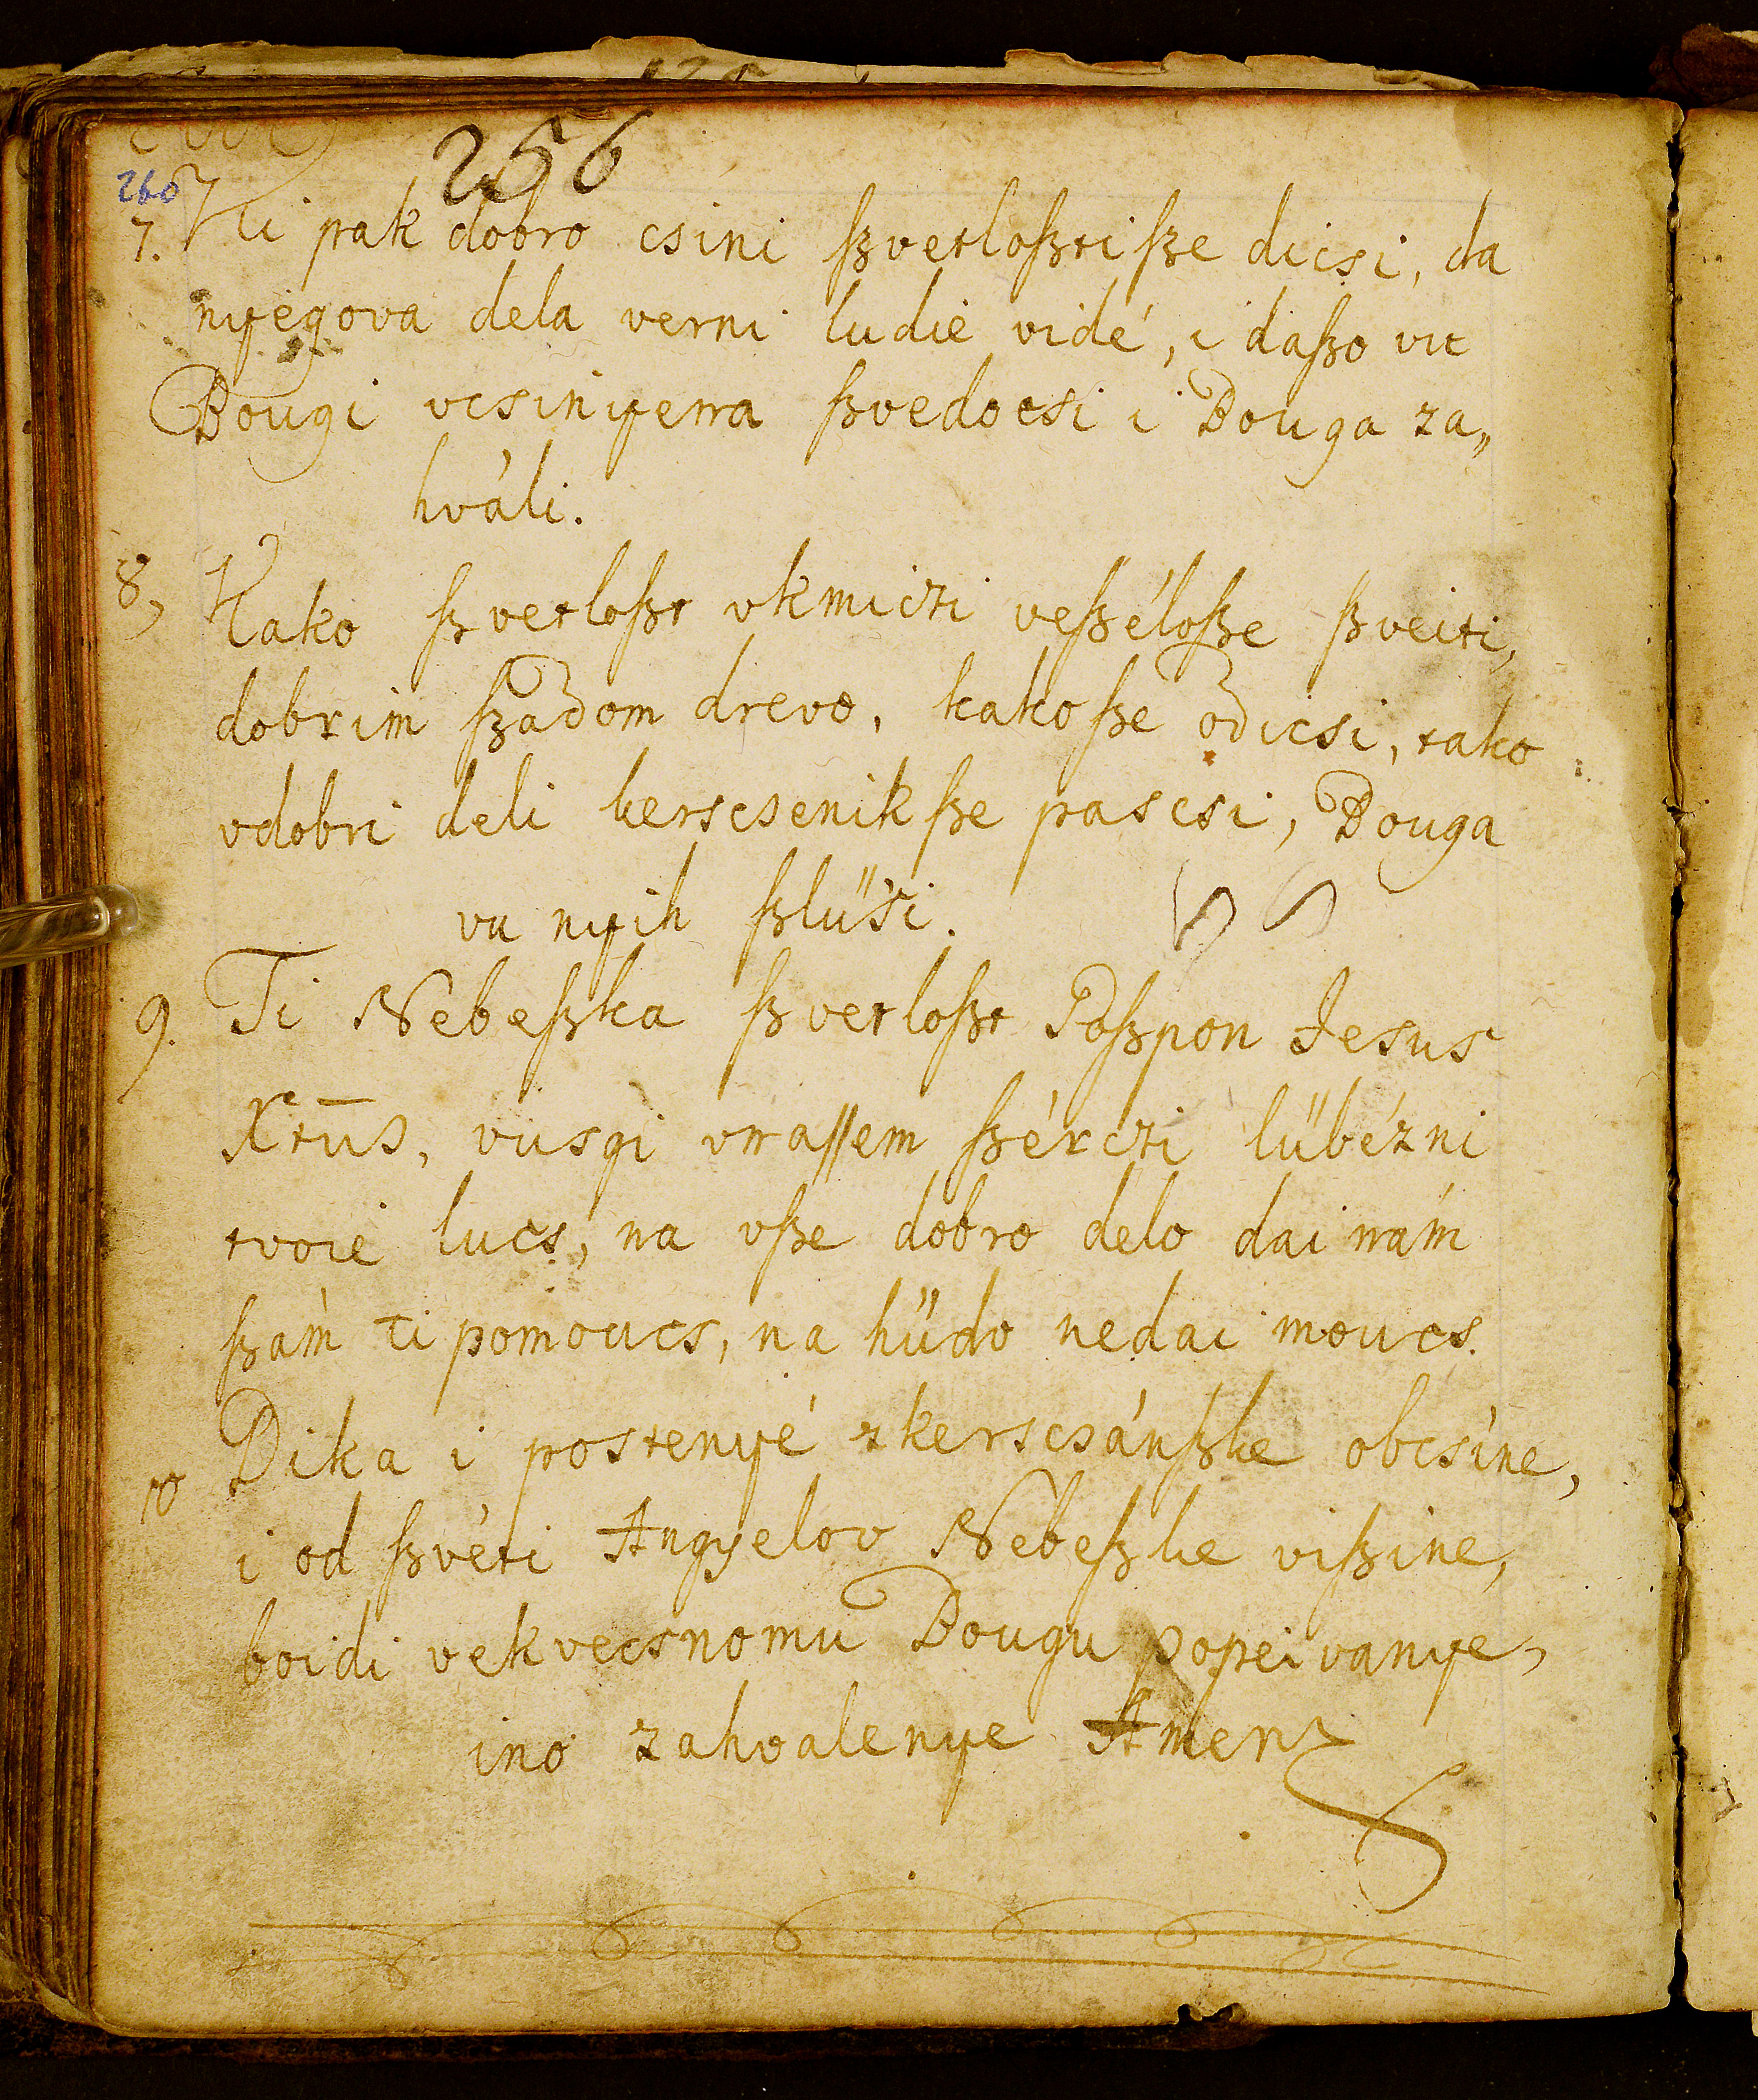 256
260
7. Ki pak dobro csini ſzvetloſzti ſze dicsi, da
nyegova dela verni ludié vidé, i daſzo vu
Bougi vcsinyena ſzvedocsi i Bouga za„
hváli.
8, Kako ſzvetloſzt vkmiczi veſzéloſze ſzveiti,
dobrim ſzadom drevo, kako ſze odicsi, tako
vdobri deli kerscsenik ſze pascsi, Bouga
vu nyih ſzlüsi.
9. Ti Nebeſzka ſzvetloſzt Goſzpon Jesus
Xtūs, vusgi vnaſſem ſzérczi lübézni
tvoié lucs, na vſze dobro delo dai nám
ſzám ti pomoucs, na hüdo nedai moucs.
10 Dika i postenyé zkerscsánſzke obcsíne,
i od ſzvéti Angyelov Nebeſzke viſzine,
boidi vekvecsnomu Bougu popeivanye,
ino zahvalenye Amen